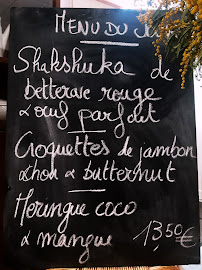 MENU DU
Shakshuka de
betterave rouge
& œuf parfait
Croquettes de jambon
&chou & butternut
Meringue coco
& mangue 13,50€